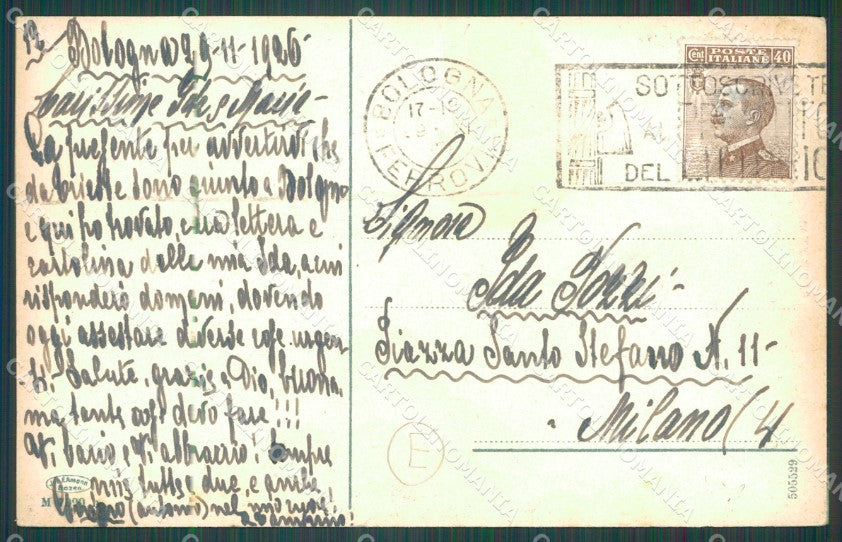 Bologna 29-11-1926
Carissime Ida e Maria -
La presente per avvertirvi che
da Trieste sono giunto a Bologna
e qui ho trovato, una lettera e
cartolina della mia Ida, a cui
risponderò domani, dovendo
oggi assestare diverse cose urgen-
ti. Salute, grazie a Dio, buona,
ma tante cose devo fare!!!
Vi bacio e Vi abbraccio. Sempre
mie tutte e due, e anche
(antonio) nel mio cuore!
BOLOGNA
17-
FERROVIA
SOTTOSCRIVETE
AL
DEL
POSTE
ITALIANE
Cent 40
Signora
Ida Pozzi -
Piazza Santo Stefano N. 11 -
Milano (4
E
505529
CARTOLINOMANIA